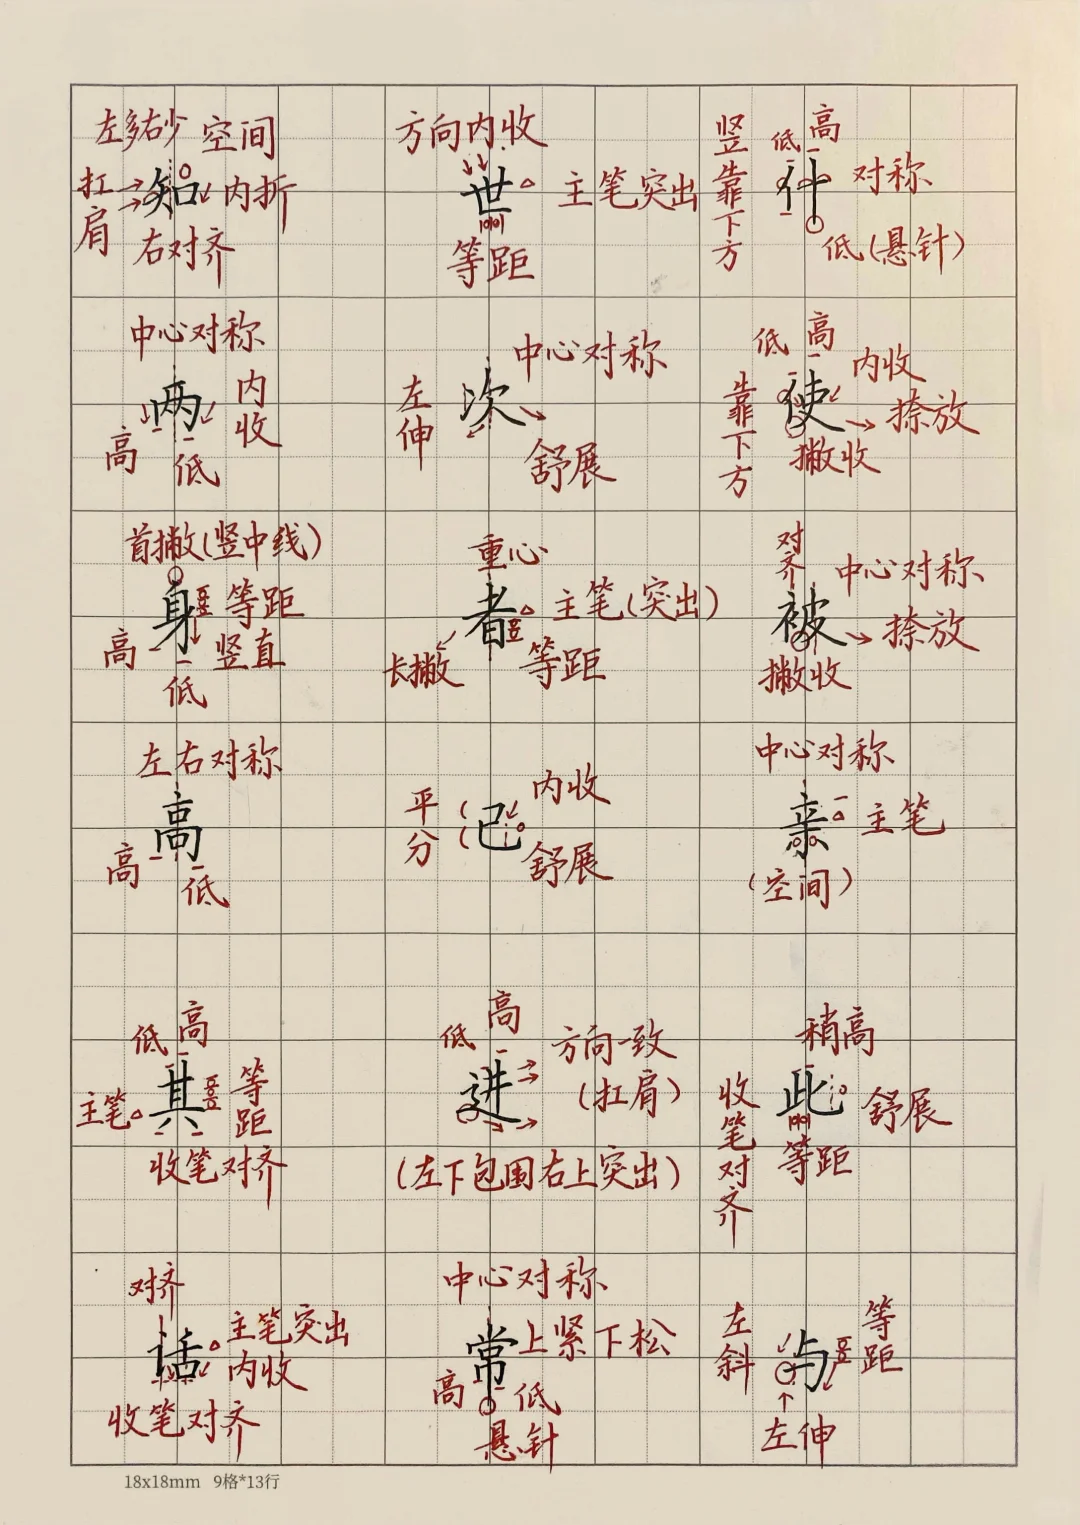 左多右少 空间
扛肩 知 内折
右对齐
方向内收
世 主笔突出
等距
竖靠下方 低 高
什 对称
低(悬针)
中心对称
两 内收
高 低
中心对称
左伸 次
舒展
低 高
靠下方 使 内收
捺放
撇收
首撇(竖中线)
身 等距
高 竖直
低
重心
者 主笔(突出)
长撇 等距
对齐 中心对称
被 捺放
撇收
左右对称
高
高 低
平分 已 内收
舒展
中心对称
亲 主笔
(空间)
低 高
主笔 其 等距
收笔对齐
低 高 方向一致
进 (扛肩)
(左下包围右上突出)
稍高
收笔对齐 此 舒展
等距
对齐
话 主笔突出
内收
收笔对齐
中心对称
常 上紧下松
高 低
悬针
左斜 与 等距
左伸
18x18mm 9格*13行